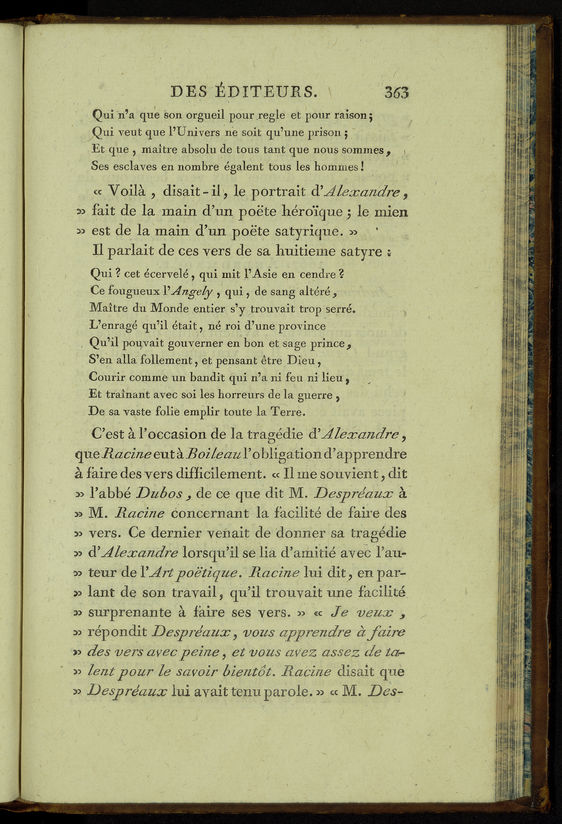 DES ÉDITEURS. 363
Qui n'a que son orgueil pour regle et pour raison;
Qui veut que l'Univers ne soit qu'une prison ;
Et que , maître absolu de tous tant que nous sommes,
Ses esclaves en nombre égalent tous les hommes!
« Voilà , disait-il, le portrait d'Alexandre,
» fait de la main d'un poëte héroïque ; le mien
» est de la main d'un poëte satyrique. »
Il parlait de ces vers de sa huitieme satyre :
Qui ? cet écervelé, qui mit l'Asie en cendre ?
Ce fougueux l'Angely , qui , de sang altéré,
Maître du Monde entier s'y trouvait trop serré.
L'enragé qu'il était, né roi d'une province
Qu'il pouvait gouverner en bon et sage prince,
S'en alla follement, et pensant être Dieu,
Courir comme un bandit qui n'a ni feu ni lieu,
Et traînant avec soi les horreurs de la guerre ,
De sa vaste folie emplir toute la Terre.
C'est à l'occasion de la tragédie d'Alexandre,
que Racine eut à Boileau l'obligation d'apprendre
à faire des vers difficilement. « Il me souvient, dit
» l'abbé Dubos, de ce que dit M. Despréaux à
» M. Racine concernant la facilité de faire des
» vers. Ce dernier venait de donner sa tragédie
» d'Alexandre lorsqu'il se lia d'amitié avec l'au-
» teur de l'Art poëtique. Racine lui dit, en par-
» lant de son travail, qu'il trouvait une facilité
» surprenante à faire ses vers. » « Je veux ,
» répondit Despréaux, vous apprendre à faire
» des vers avec peine, et vous avez assez de ta-
» lent pour le savoir bientôt. Racine disait que
» Despréaux lui avait tenu parole. » « M. Des-